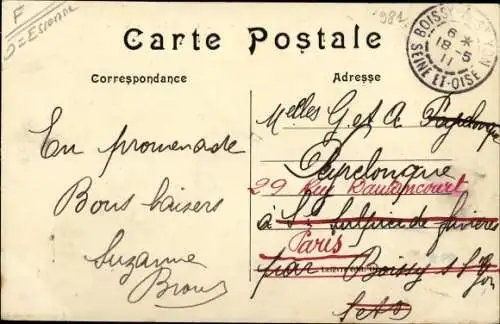 F
D=Essonne
981
Carte Postale
BOISSY
6 *
18 - 5
11
SEINE-ET-OISE
Correspondance
Adresse
En promenade
Bons baisers
Suzanne
Melles G et A
Papelongue
29 Rue Daudincourt
à St Sulpice de Favières
Paris
par Boissy s St Yon
S et O